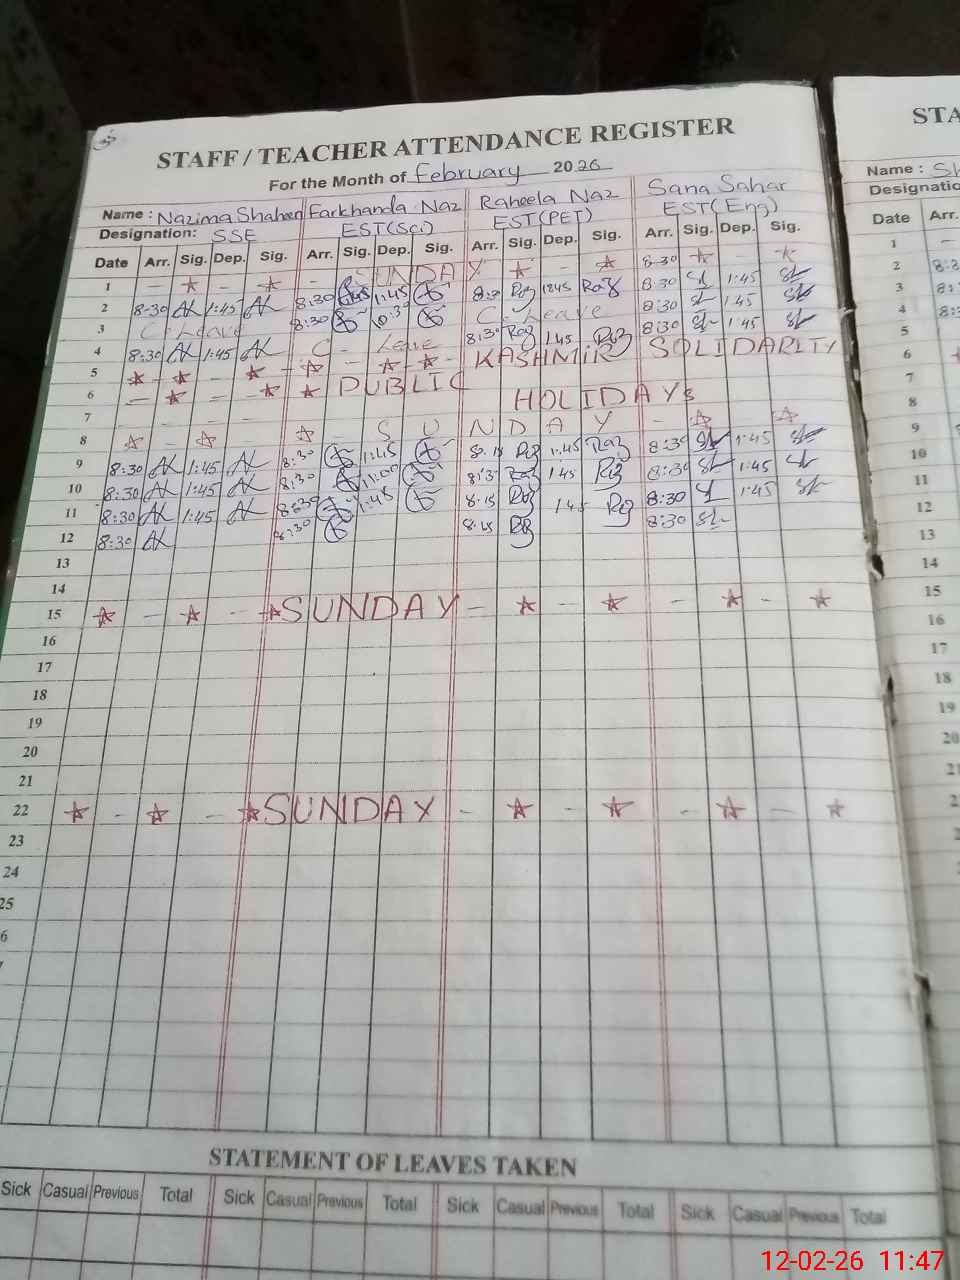 STAFF / TEACHER ATTENDANCE REGISTER
For the Month of February 2026
Name : Nazima Shaheen Farkhanda Naz Raheela Naz Sana Sahar
Designation: SSE EST(Sci) EST(PET) EST(Eng)
Date Arr. Sig. Dep. Sig. Arr. Sig. Dep. Sig. Arr. Sig. Dep. Sig. Arr. Sig. Dep. Sig.
1 SUNDAY 8:30
2 8:30 1:45 8:30 1:45 8:30 1:45 8:30 1:45
3 C-Leave 8:30 C-Leave 8:30 1:45
4 8:30 1:45 C-Leave 8:30 1:45 8:30 1:45
5 KASHMIR SOLIDARITY
6 PUBLIC HOLIDAYs
7
8 SUNDAY
9 8:30 1:45 8:30 1:45 1:45 8:30 1:45
10 8:30 1:45 8:30 11:00 8:30 1:45 8:30 1:45
11 8:30 1:45 8:30 1:45 8:15 1:45 8:30 1:45
12 8:30 8:30 8:15 8:30
13
14
15 SUNDAY
16
17
18
19
20
21
22 SUNDAY
23
24
25
6
STATEMENT OF LEAVES TAKEN
Sick Casual Previous Total Sick Casual Previous Total Sick Casual Previous Total Sick Casual Previous Total
STA
Name : Sh
Designatio
Date Arr.
1
2
3
4
5
6
7
8
9
10
11
12
13
14
15
16
17
18
19
20
21
2
2
12-02-26 11:47